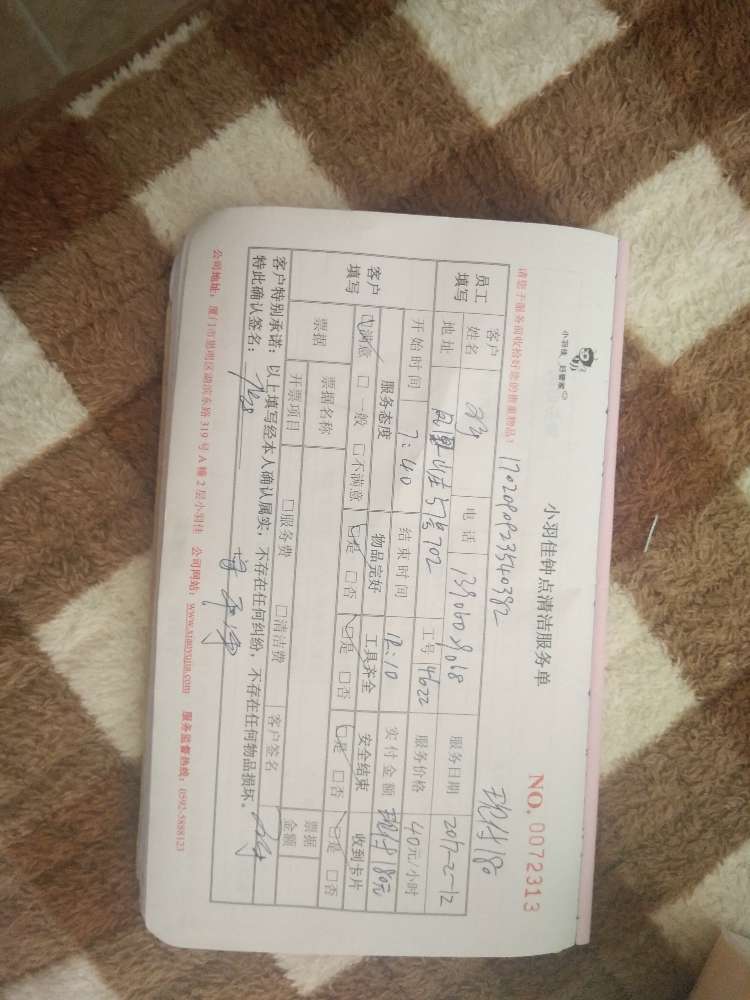 小羽佳 好管家
小羽佳钟点清洁服务单
NO. 0072313
请您于服务前收拾好您的贵重物品!
现付180
员工填写 客户姓名 电话 服务日期 2017-2-12
地址 702 工号 4622 服务价格 40元/小时
开始时间 7:40 结束时间 12:10 实付金额 现付180元
客户填写 服务态度 物品完好 工具齐全 安全结束 收到卡片
☑满意 □一般 □不满意 ☑是 □否 ☑是 □否 ☑是 □否 ☑是 □否
票据 票据名称 票据金额
开票项目 □服务费 □清洁费 客户签名
客户特别承诺:以上填写经本人确认属实,不存在任何纠纷,不存在任何物品损坏。
特此确认签名:
公司地址:厦门市思明区湖滨东路 319 号 A 幢 2 层小羽佳 公司网站:www.xiaoyujia.com 服务监督热线:0592-5888123